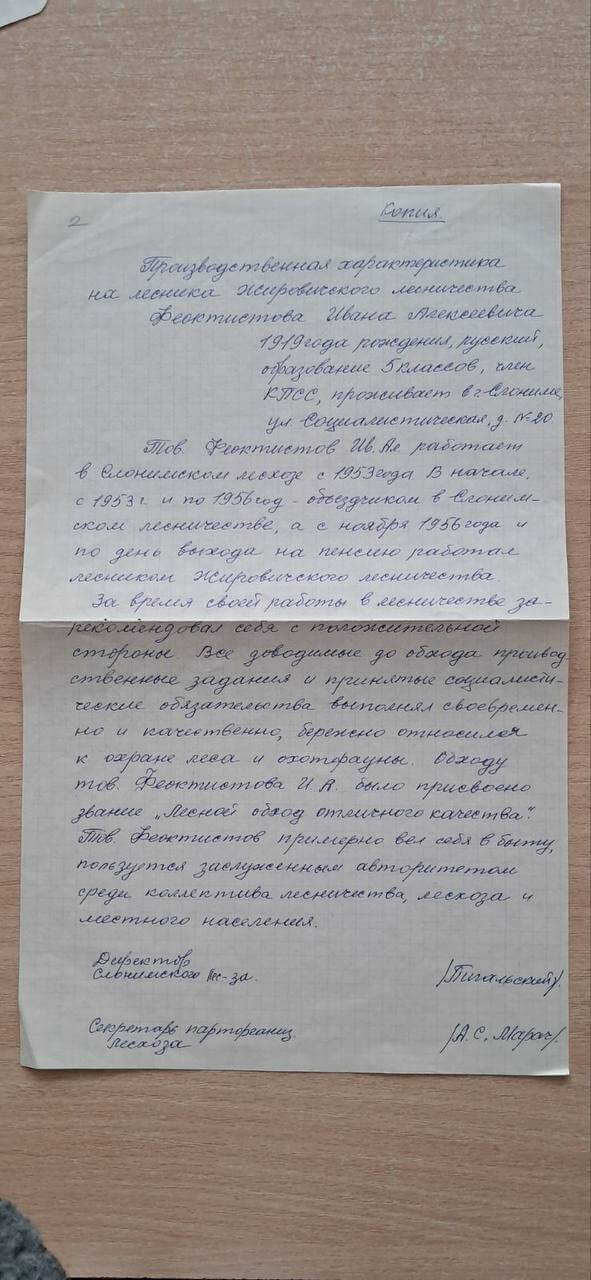 2
Копия.
Производственная характеристика
на лесника Жировичского лесничества
Феоктистова Ивана Алексеевича
1919 года рождения, русский,
образование 5 классов, член
КПСС, проживает в г. Слониме,
ул. Социалистическая, д. № 20.
Тов. Феоктистов Ив. Ал. работает
в Слонимском лесхозе с 1953 года. В начале,
с 1953 г. и по 1956 год - объездчиком в Слоним-
ском лесничестве, а с ноября 1956 года и
по день выхода на пенсию работал
лесником Жировичского лесничества.
За время своей работы в лесничестве за-
рекомендовал себя с положительной
стороны. Все доводимые до обхода производ-
ственные задания и принятые социалисти-
ческие обязательства выполнял своевремен-
но и качественно, бережно относился
к охране леса и охотфауны. Обходу
тов. Феоктистова И. А. было присвоено
звание „Лесной обход отличного качества".
Тов. Феоктистов примерно вел себя в быту,
пользуется заслуженным авторитетом
среди коллектива лесничества, лесхоза и
местного населения.
Директор
Слонимского лес-за. /Пигальский/.
Секретарь парторганиз.
лесхоза /А. С. Марач/.